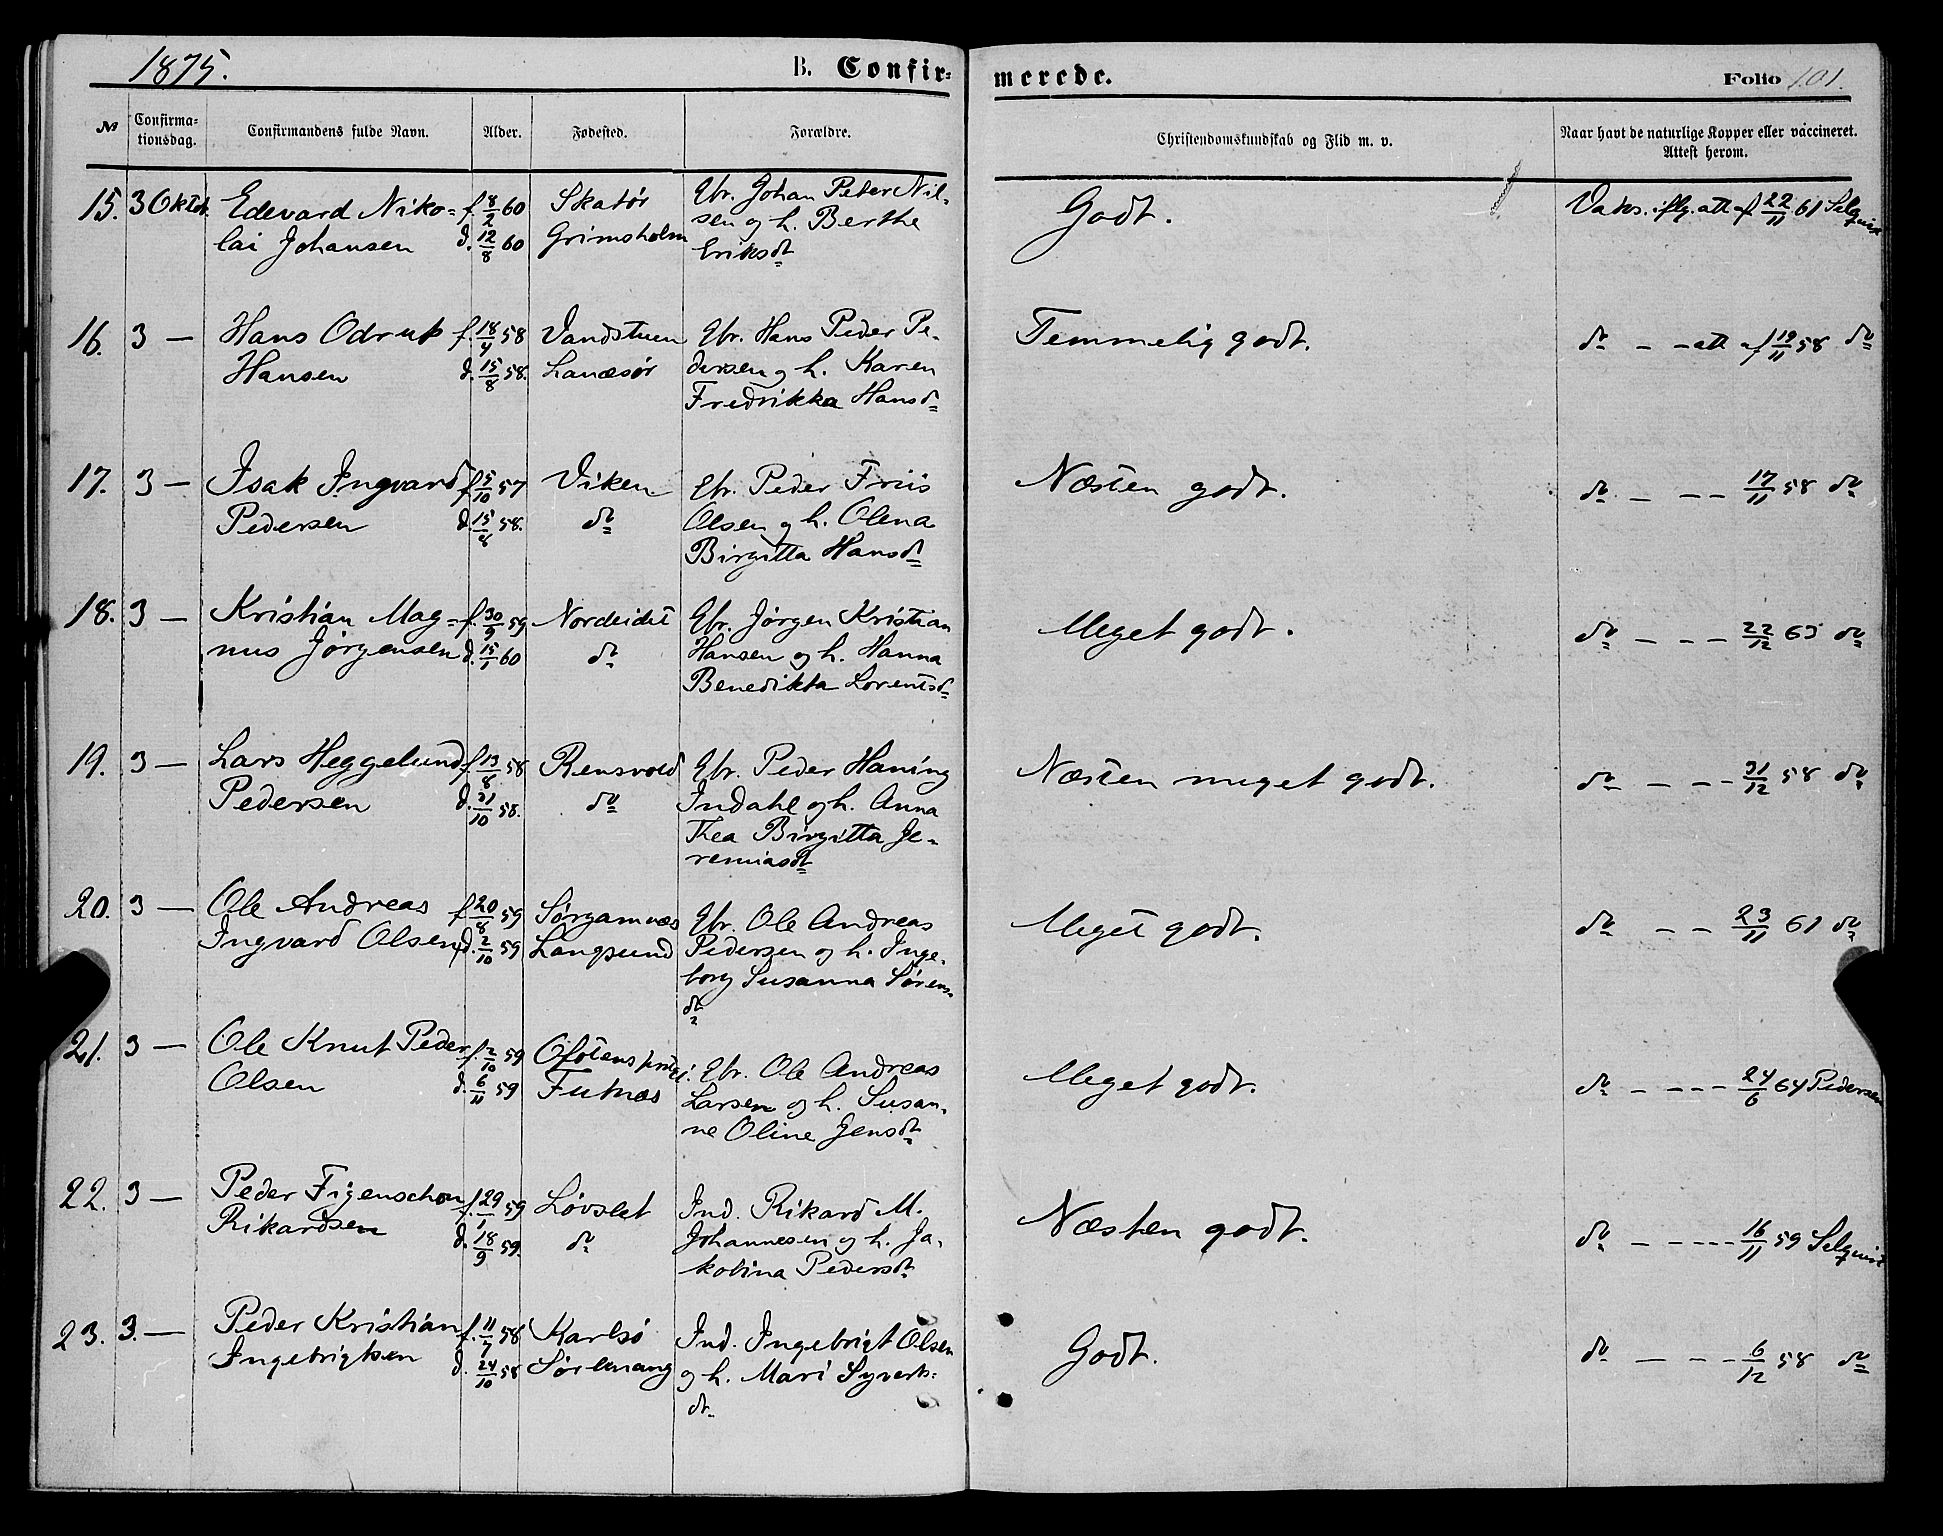 1875.
B. Confir-
merede.
Folio 101.
№
Confirma-
tionsdag.
Confirmandens fulde Navn.
Alder.
Fødested.
Forældre.
Christendomskundskab og Flid m. v.
Naar havt de naturlige Kopper eller vaccineret.
Attest herom.
15. 3 Oktob. Edevard Niko- f. 8/2 60 Skatør Gbr. Johan Peter Nil- Godt. Vaks. iflg. att af 22/11 61 Selqvist
lai Johansen d. 12/8 60 Grimsholm sen og h. Berthe
Eriksdt
16. 3 — Hans Odrup f. 18/4 58 Vandstuen Gbr. Hans Peder Pe- Temmelig godt. do — — att af 19/11 58 do
Hansen d. 15/8 58. Lanæsør dersen og h. Karen
Fredrikka Hansd
17. 3 — Isak Ingvard f. 5/10 57 Viken Gbr. Peder Friis Næsten godt. do — — — 17/11 58 do
Pedersen d. 15/8 58. do Olsen og h. Olena
Birgitta Hansdt
18. 3 — Kristian Mag- f. 30/9 59 Nordeidet Gbr. Jørgen Kristian Meget godt. do — — — 22/12 63 do
nus Jørgensen d. 15/1 60 do Hansen og h. Hanna
Benedikta Lorentsd
19. 3 — Lars Heggelund f. 13/8 58 Rensvold Gbr. Peder Haning Næsten meget godt. do — — — 31/12 58 do
Pedersen d. 31/10 58. do Indahl og h. Anna
Thea Birgitta Je-
remiasdt
20. 3 — Ole Andreas f. 20/8 59 Sørgamnæs Gbr. Ole Andreas Meget godt. do — — 23/11 61 do
Ingvard Olsen d. 2/10 59 Langsund Pedersen og h. Inge-
borg Susanna Sørens-
dt
21. 3 — Ole Knut Peder f. 2/10 59 Ofotens præg. Gbr. Ole Andreas Meget godt. do — — — 24/6 64 Pedersen
Olsen d. 6/11 59 Futnæs Larsen og h. Susan-
ne Oline Jensdt
22. 3 — Peder Figenschou f. 29/1 59 Løvslet Ind. Rikard M. Næsten godt. do — — — 16/11 59 Selqvist
Rikardsen d. 18/9 59. do Johannesen og h. Ja-
kobina Pedersdt
23. 3. — Peder Kristian f. 11/7 58 Karlsø Ind. Ingebrigt Olsen Godt. do — — — 6/12 58 do
Ingebrigtsen d. 24/10 58 Sørlenang og h. Mari Syverts-
dt.